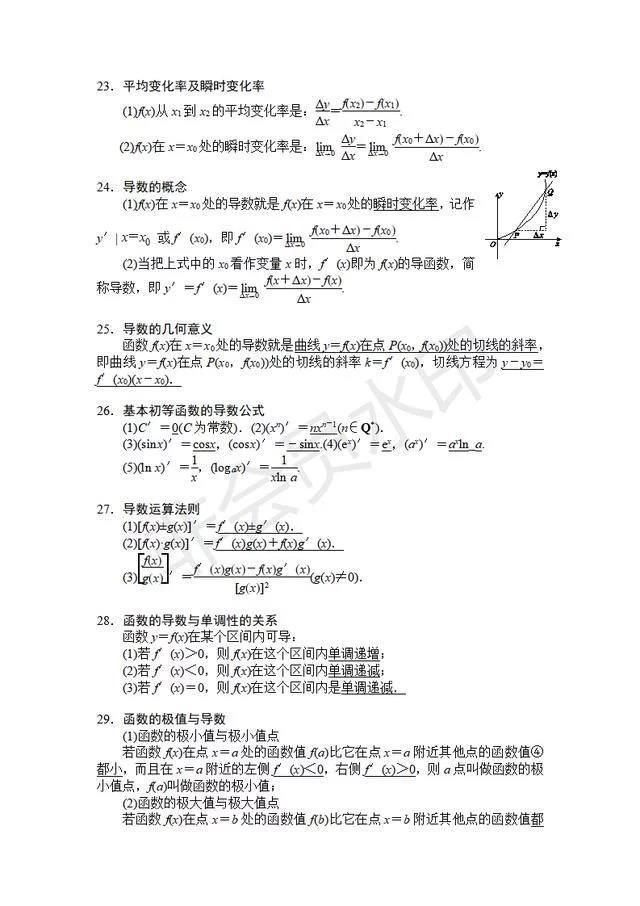 23．平均变化率及瞬时变化率
(1)f(x)从 x₁到 x₂的平均变化率是：Δy/Δx＝(f(x₂)－f(x₁))/(x₂－x₁).
(2)f(x)在 x＝x₀处的瞬时变化率是：lim Δx→0 Δy/Δx＝lim Δx→0 (f(x₀＋Δx)－f(x₀))/Δx.
24．导数的概念
(1)f(x)在 x＝x₀处的导数就是 f(x)在 x＝x₀处的瞬时变化率，记作
y′| x＝x₀ 或 f′(x₀)，即 f′(x₀)＝lim Δx→0 (f(x₀＋Δx)－f(x₀))/Δx.
(2)当把上式中的 x₀看作变量 x 时，f′(x)即为 f(x)的导函数，简
称导数，即 y′＝f′(x)＝lim Δx→0 (f(x＋Δx)－f(x))/Δx.
y=f(x)
y
Q
Δy
P
Δx
O
x
25．导数的几何意义
函数 f(x)在 x＝x₀处的导数就是曲线 y＝f(x)在点 P(x₀，f(x₀))处的切线的斜率，
即曲线 y＝f(x)在点 P(x₀，f(x₀))处的切线的斜率 k＝f′(x₀)，切线方程为 y－y₀＝
f′(x₀)(x－x₀)．
26．基本初等函数的导数公式
(1)C′＝0(C 为常数)．(2)(xⁿ)′＝nxⁿ⁻¹(n∈Q*)．
(3)(sinx)′＝cosx，(cosx)′＝－sinx.(4)(eˣ)′＝eˣ，(aˣ)′＝aˣln_a.
(5)(ln x)′＝1/x，(logₐx)′＝1/(xln a).
27．导数运算法则
(1)[f(x)±g(x)]′＝f′(x)±g′(x)．
(2)[f(x)·g(x)]′＝f′(x)g(x)＋f(x)g′(x)．
(3)[f(x)/g(x)]′＝(f′(x)g(x)－f(x)g′(x))/[g(x)]²(g(x)≠0)．
28．函数的导数与单调性的关系
函数 y＝f(x)在某个区间内可导：
(1)若 f′(x)＞0，则 f(x)在这个区间内单调递增；
(2)若 f′(x)＜0，则 f(x)在这个区间内单调递减；
(3)若 f′(x)＝0，则 f(x)在这个区间内是单调递减．
29．函数的极值与导数
(1)函数的极小值与极小值点
若函数 f(x)在点 x＝a 处的函数值 f(a)比它在点 x＝a 附近其他点的函数值④
都小，而且在 x＝a 附近的左侧 f′(x)＜0，右侧 f′(x)＞0，则 a 点叫做函数的极
小值点，f(a)叫做函数的极小值；
(2)函数的极大值与极大值点
若函数 f(x)在点 x＝b 处的函数值 f(b)比它在点 x＝b 附近其他点的函数值都
非会员水印